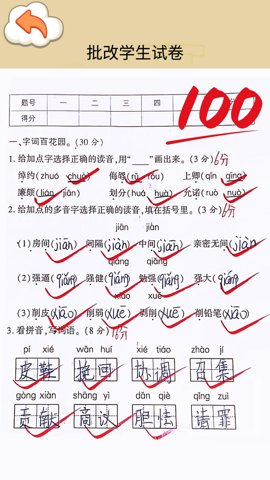 批改学生试卷
100
题号 一 二 三 四
得分
一、字词百花园。(30分)
1. 给加点字选择正确的读音,用“___”画出来。(3分) 6分
绰约(zhuó chuò) 侮辱(rǔ rǒu) 上卿(qīn qīng)
廉颇(lián jiān) 划分(huá huà) 允诺(ruò nuò)
2. 给加点的多音字选择正确的读音,填在括号里。(3分)
jiān jiàn
(1)房间(jiān) 间隔(jiàn) 中间(jiān) 亲密无间(jiàn)
qiáng qiǎng
(2)强逼(qiǎng) 强健(qiáng) 勉强(qiǎng) 强大(qiáng)
xiāo xuē
(3)削皮(xiāo) 削弱(xuē) 剥削(xuē) 削铅笔(xiāo)
3. 看拼音,写词语。(8分) 16分
pí xié wǎn huí xié tiáo zhào jí
皮鞋 挽回 协调 召集
gòng xiàn shāng yì dǎn qiè qǐng zuì
贡献 商议 胆怯 请罪